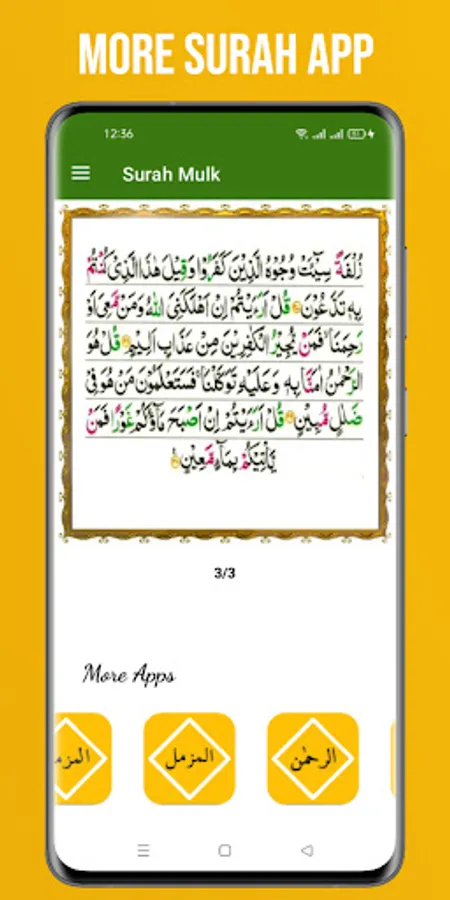 MORE SURAH APP
12:36
Surah Mulk
زُلْفَةً سِيْٓـَٔتْ وُجُوْهُ الَّذِيْنَ كَفَرُوْا وَقِيْلَ هٰذَا الَّذِيْ كُنْتُمْ
بِهٖ تَدَّعُوْنَ ۝ قُلْ اَرَءَيْتُمْ اِنْ اَهْلَكَنِيَ اللّٰهُ وَمَنْ مَّعِيَ اَوْ
رَحِمَنَا ۙ فَمَنْ يُّجِيْرُ الْكٰفِرِيْنَ مِنْ عَذَابٍ اَلِيْمٍ ۝ قُلْ هُوَ
الرَّحْمٰنُ اٰمَنَّا بِهٖ وَعَلَيْهِ تَوَكَّلْنَا ۚ فَسَتَعْلَمُوْنَ مَنْ هُوَ فِيْ
ضَلٰلٍ مُّبِيْنٍ ۝ قُلْ اَرَءَيْتُمْ اِنْ اَصْبَحَ مَآؤُكُمْ غَوْرًا فَمَنْ
يَّاْتِيْكُمْ بِمَآءٍ مَّعِيْنٍ ۝
3/3
More Apps
المزمل
المزمل
الرحمٰن